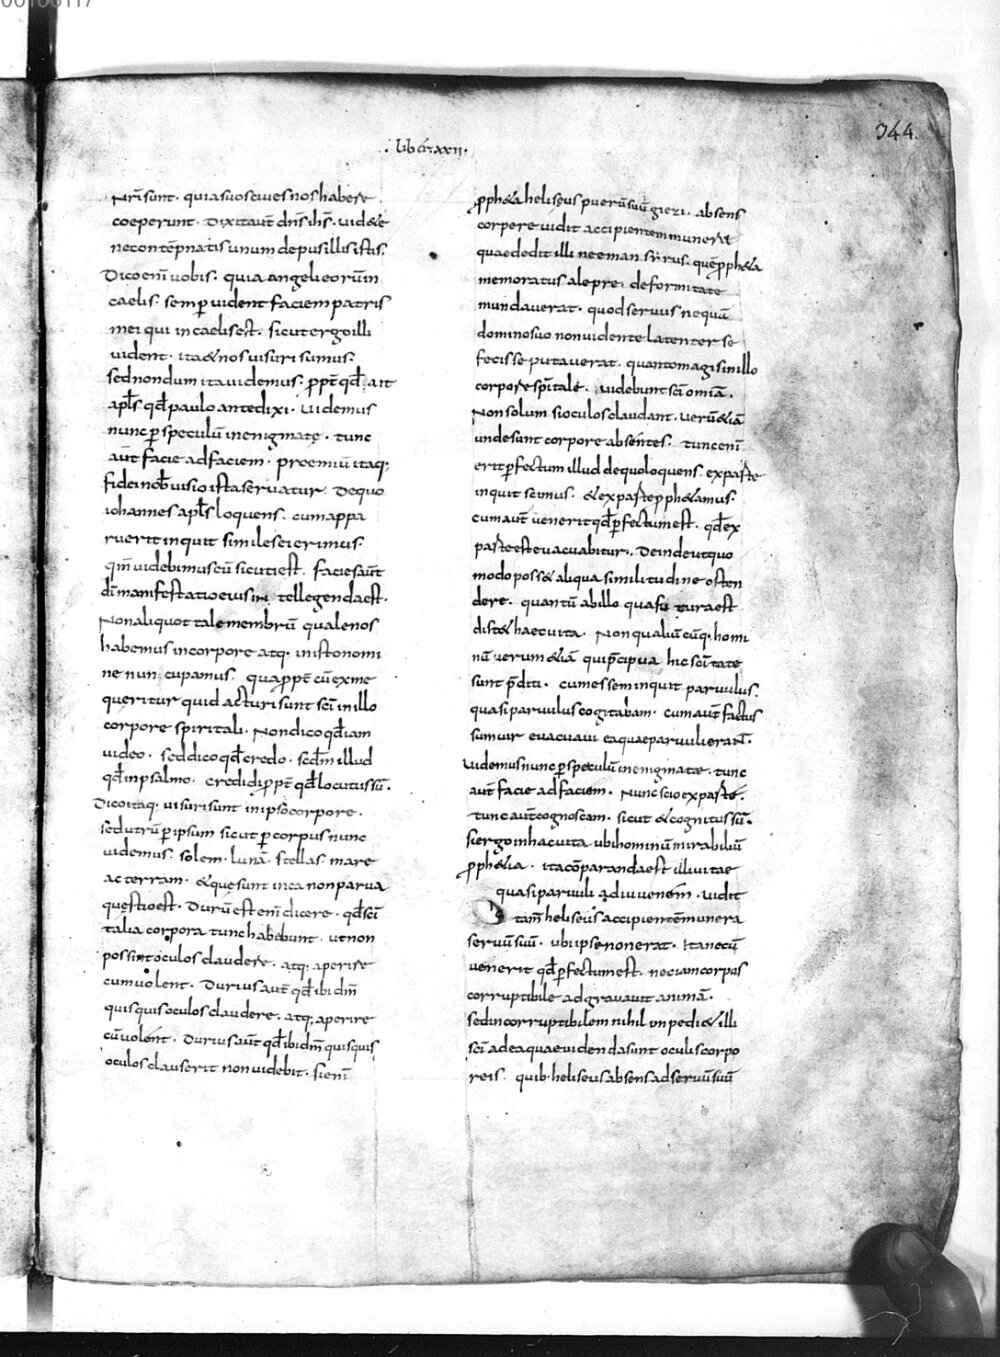 00106117
344
· liber · xxii ·
nr̄i sunt · quia suos cives nos habere
coeperunt · Dixit aut̄ dn̄s ih̄s · videte
ne contēpnatis unum de pusillis istis ·
Dico enī vobis · quia angeli eorum in
caelis · semp vident faciem patris
mei qui in caelis est · sicut ergo illi
vident · ita & nos visuri sumus ·
sed nondum ita videmus · ppt̄ qd̄ ait
apls̄ qd̄ paulo ante dixi · videmus
nunc p speculū in enigmate · tunc
aut̄ facie ad faciem · proemiū itaq;
fidei nob̄ visio ista servatur · De quo
iohannes apls̄ loquens · cum appa
ruerit inquit similes ei erimus ·
qm̄ videbimus eū sicuti est · facies aut̄
dī manifestatio eius intellegenda est ·
Non aliquot tale membrū quale nos
habemus in corpore atq· in isto nomi
ne nuncupamus · qua ppt̄ cū ex me
queritur quid acturi sunt scī in illo
corpore spiritali · Non dico qd̄ iam
video · sed dico qd̄ credo · scdm̄ illud
qd̄ in psalmo · credidi ppt̄ qd̄ locutus sū ·
Dico itaq· visuri sunt in ipsō corpore ·
sed utrū p ipsum sicut p corpus nunc
videmus · solem · lunā · stellas · mare
ac terram · & que sunt in ea non parva
questio est · Durū est enī dicere · qd̄ scī
talia corpora tunc habebunt · ut non
possint oculos claudere · atq; aperire
cum volent · Durius aut̄ qd̄ ibi dm̄
quisquis oculos claudere · atq; aperire
cū volent · Durius aut̄ qd̄ ibi dm̄ quisquis
oculos clauserit non videbit · si enī
pph&a heliseus puerū suū giezi · absens
corpere vidit accipientem munera
quae dedit illi neeman syrus · quē pph&a
memoratus a lepre · deformitate
mundaverat · quod servus nequā
domino suo non vidente latenter se
fecisse putaverat · quanto magis in illo
corpore spiritale · videbunt scī omīa ·
Non solum si oculos claudant · verū &iā
unde sunt corpore absentes · tunc enī
erit pfectum illud de quo loquens · ex parte
inquit scimus · & ex parte pph&amus ·
cum aut̄ venerit qd̄ pfectum est · qd̄ ex
parte est evacuabitur · Deinde ut quo
modo poss& aliqua similitudine osten
dere · quantū ab illo qua futura est
dist& haec vita · Non qualiū cūq· homi
nū verum &iā qui p̄cipua hic scītate
sunt p̄diti · cum essem inquit parvulus ·
quasi parvulus cogitabam · cum aut̄ factus
sum vir evacuavi ea quae parvuli erant̄ ·
videmus nunc p speculū in enigmate · tunc
aut̄ facie ad faciem · Nunc scio ex parte ·
tunc aut̄ cognoscam · sicut & cognitus sū ·
si ergo in hac vita ubi hominū mirabiliū
pph&ia · ita cōparanda est illi vitae
quasi parvuli ad iuvenem · vidit
tam̄ heliseus accipientē munera
servū suū · ubi ipse non erat · Itane cū
venerit qd̄ pfectum est · nec iam corpus
corruptibile adgravavit animā ·
sed incorruptibilem nihil inpedi&illi
scī ad ea quae videnda sunt oculis corpo
reis · quib· heliseus absens ad servū suū